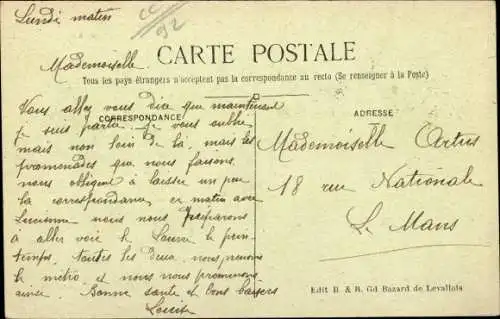 Lundi matin
CARTE POSTALE
Tous les pays étrangers n'acceptent pas la correspondance au recto (Se renseigner à la Poste)
CORRESPONDANCE
ADRESSE
Mademoiselle
Vous allez vous dire que maintenant
je suis partie je vous oublie
mais non loin de la, mais les
promenades que nous faisons
nous obligent à laisser un peu
la correspondance ce matin avec
Lucienne nous nous préparons
à aller voir le Louvre le
temps, toutes les deux nous prenons
le métro et nous nous promenons
ainsi. Bonne sante et bons baisers
Louise
Mademoiselle Artus
18 rue Nationale
Le Mans
Edit B. & R. Gd Bazard de Levallois